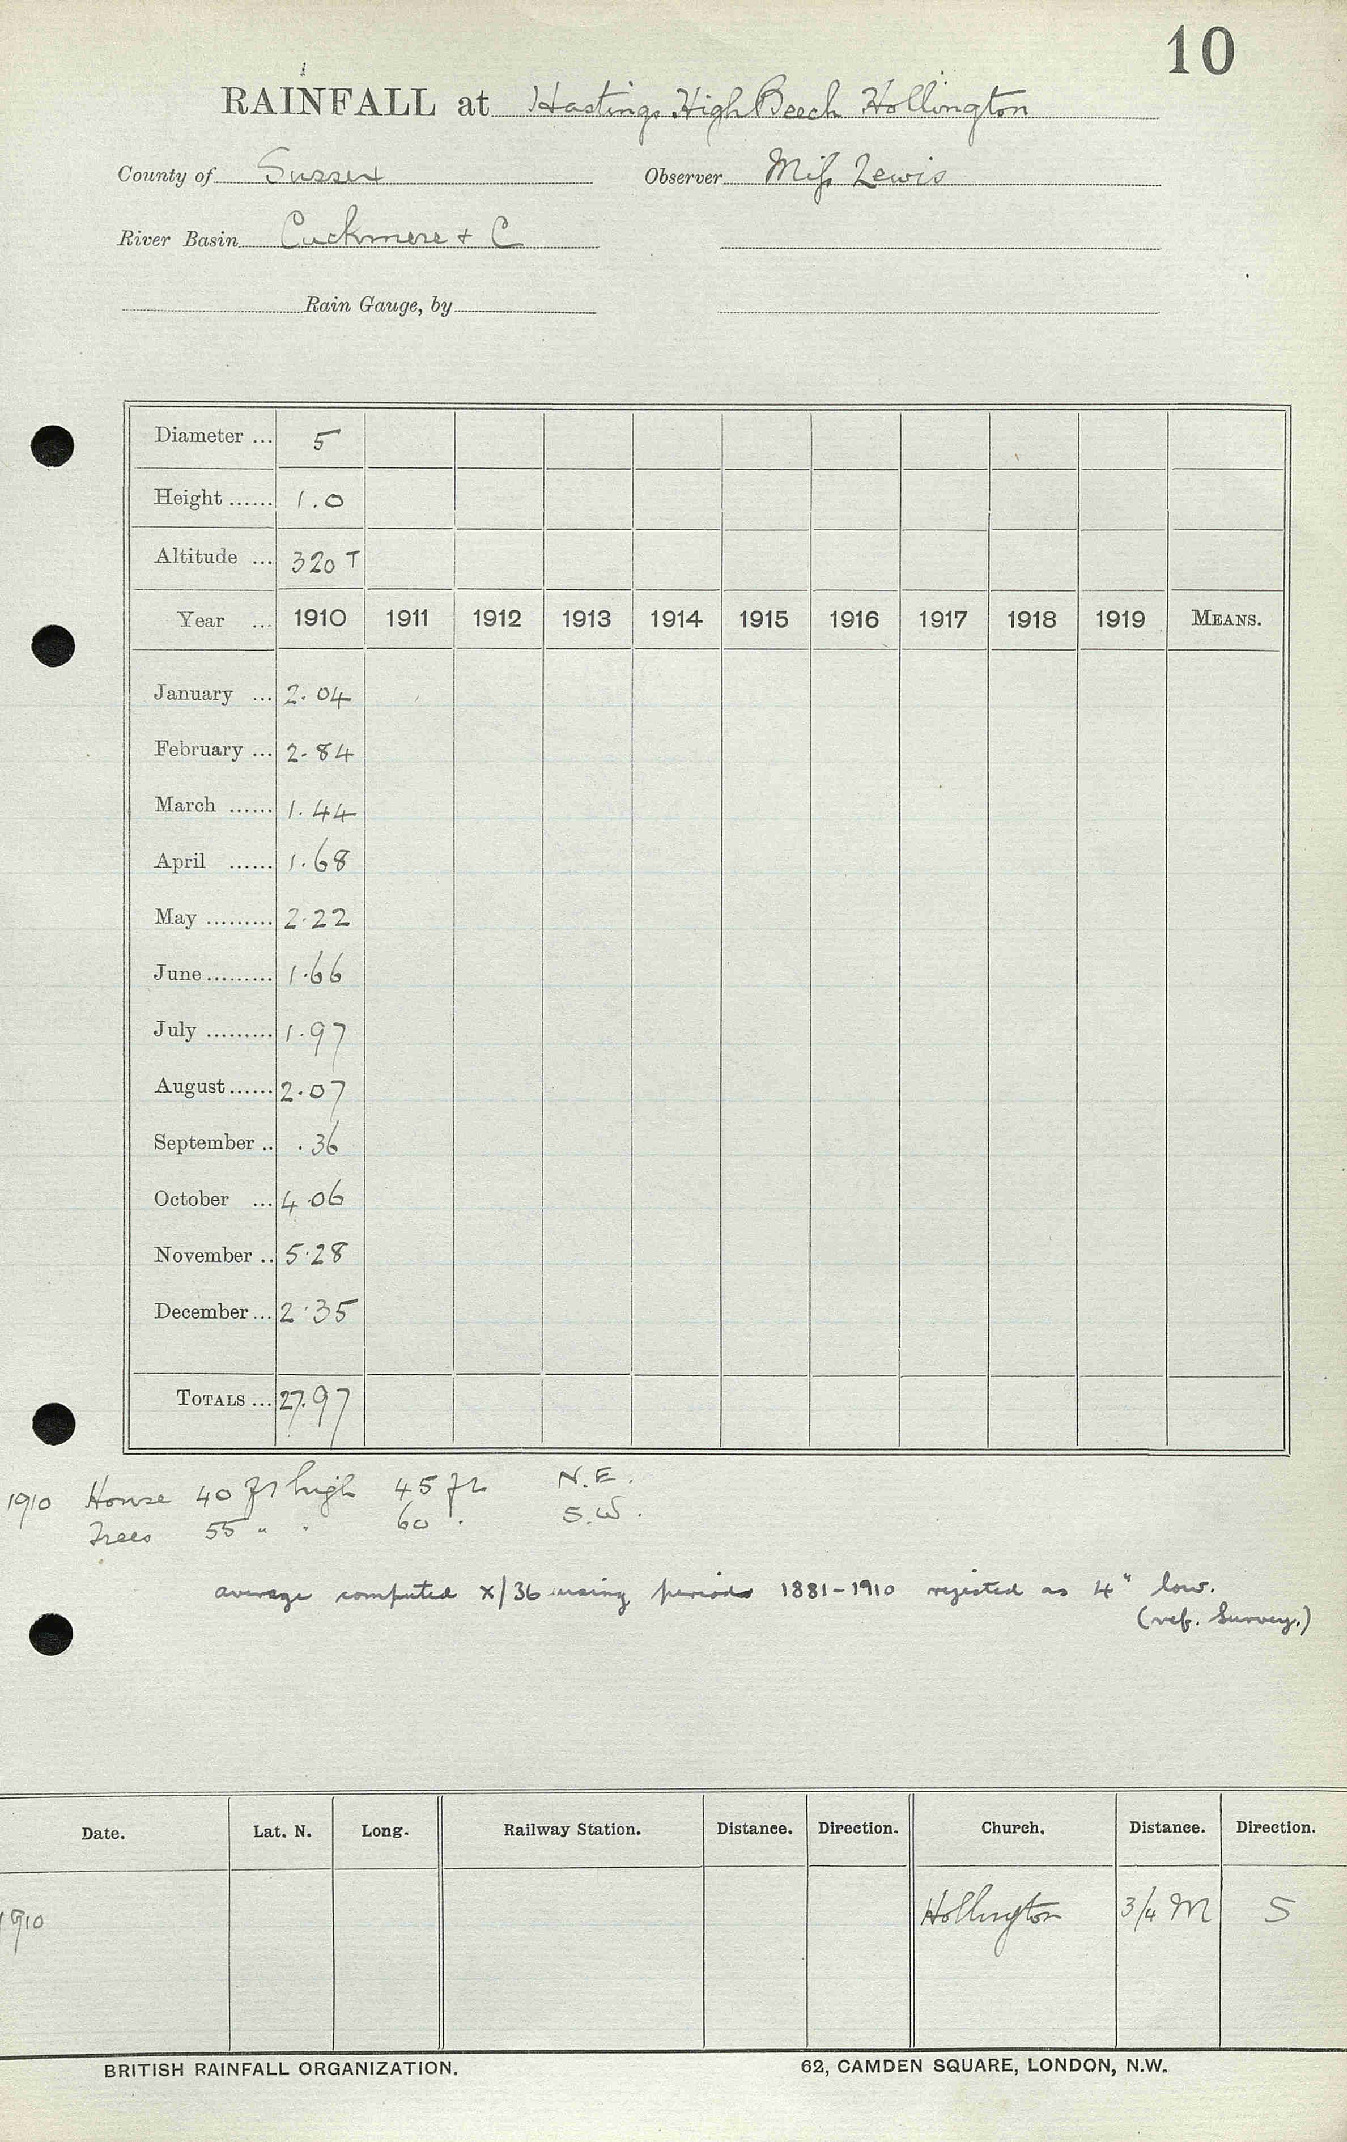 10
RAINFALL at Hastings High Beech Hollington
County of Sussex Observer Miss Lewis
River Basin Cuckmere & C
Rain Gauge, by
Diameter ... 5
Height ...... 1.0
Altitude ... 320 T
Year ... 1910 1911 1912 1913 1914 1915 1916 1917 1918 1919 MEANS.
January ... 2.04
February ... 2.84
March ...... 1.44
April ...... 1.68
May ......... 2.22
June ......... 1.66
July ......... 1.97
August ...... 2.07
September .. .36
October ... 4.06
November .. 5.28
December ... 2.35
TOTALS ... 27.97
1910 House 40 ft high 45 ft N.E.
Trees 55 " " 60 " S.W.
average computed x/36 using periods 1881-1910 rejected as 4" low.
(ref. Survey.)
Date. Lat. N. Long. Railway Station. Distance. Direction. Church. Distance. Direction.
1910 Hollington 3/4 M S
BRITISH RAINFALL ORGANIZATION. 62, CAMDEN SQUARE, LONDON, N.W.